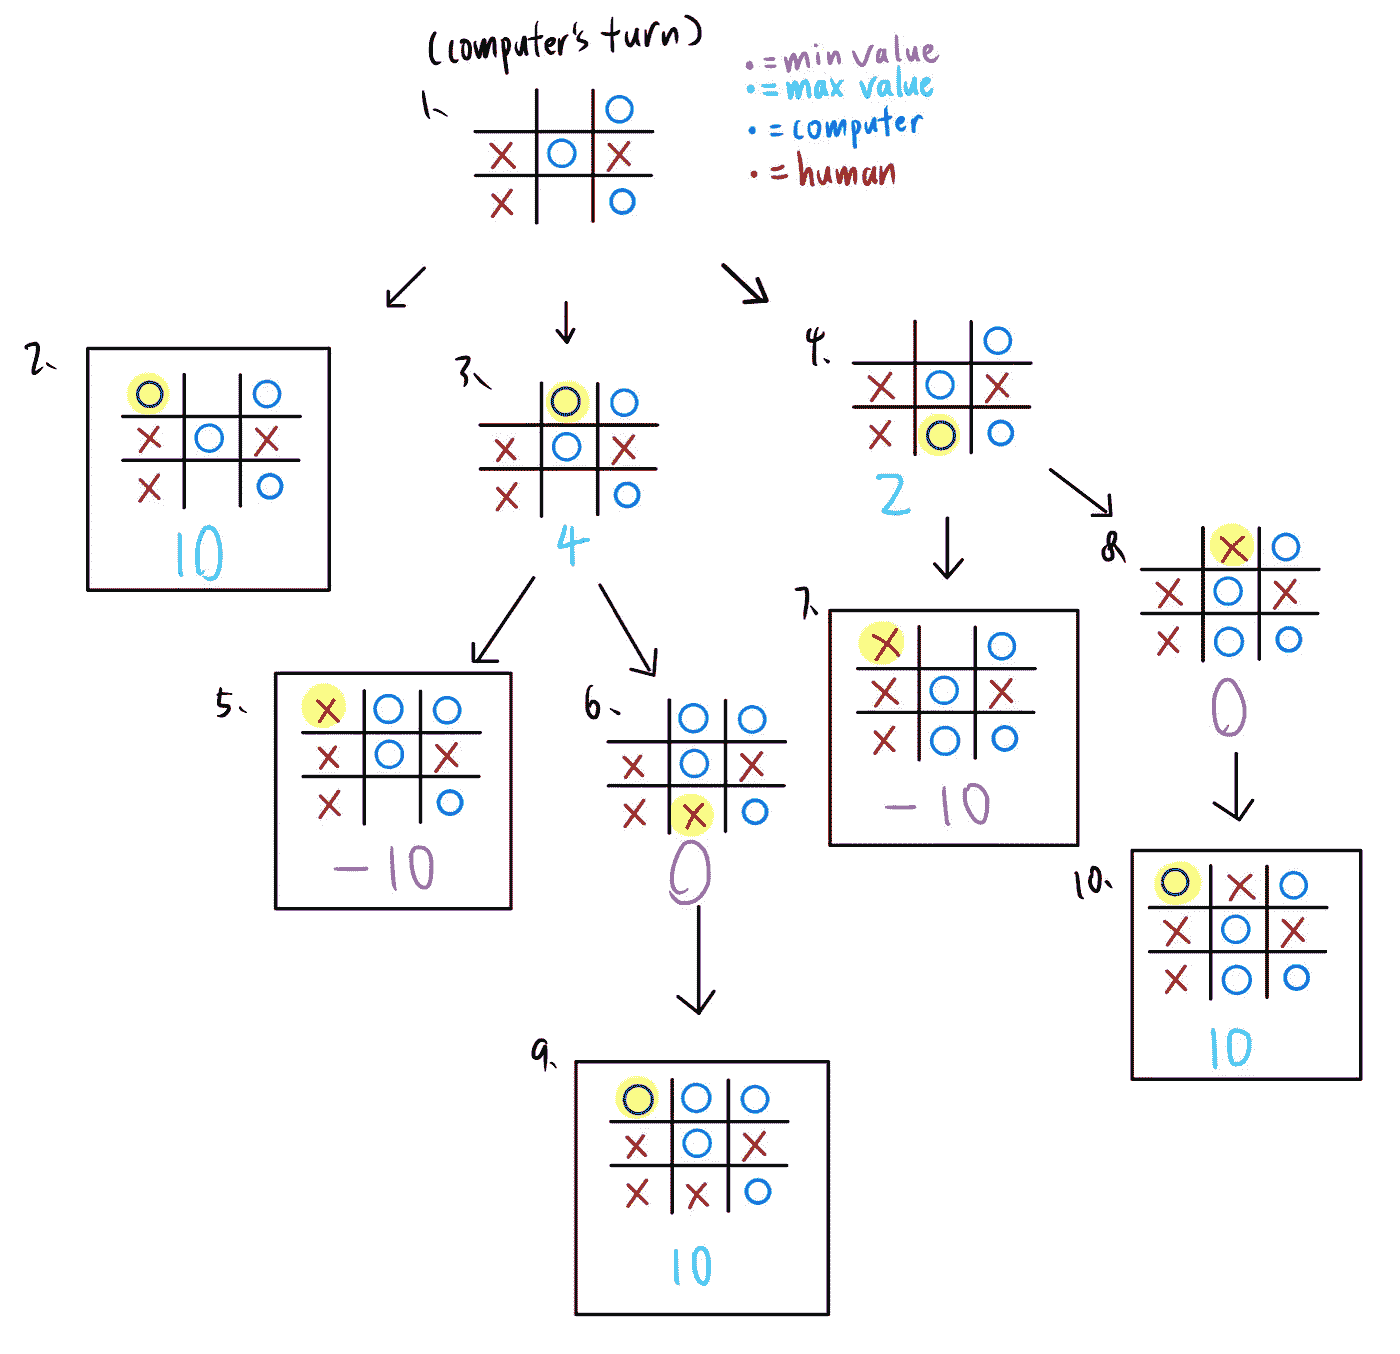 (computer's turn)
• = min value
• = max value
• = computer
• = human
1.
O
X O X
X O
2.
O O
X O X
X O
10
3.
O O
X O X
X O
4
4.
O
X O X
X O O
2
5.
X O O
X O X
X O
-10
6.
O O
X O X
X X O
0
7.
X O
X O X
X O O
-10
8.
X O
X O X
X O O
0
9.
O O O
X O X
X X O
10
10.
O X O
X O X
X O O
10